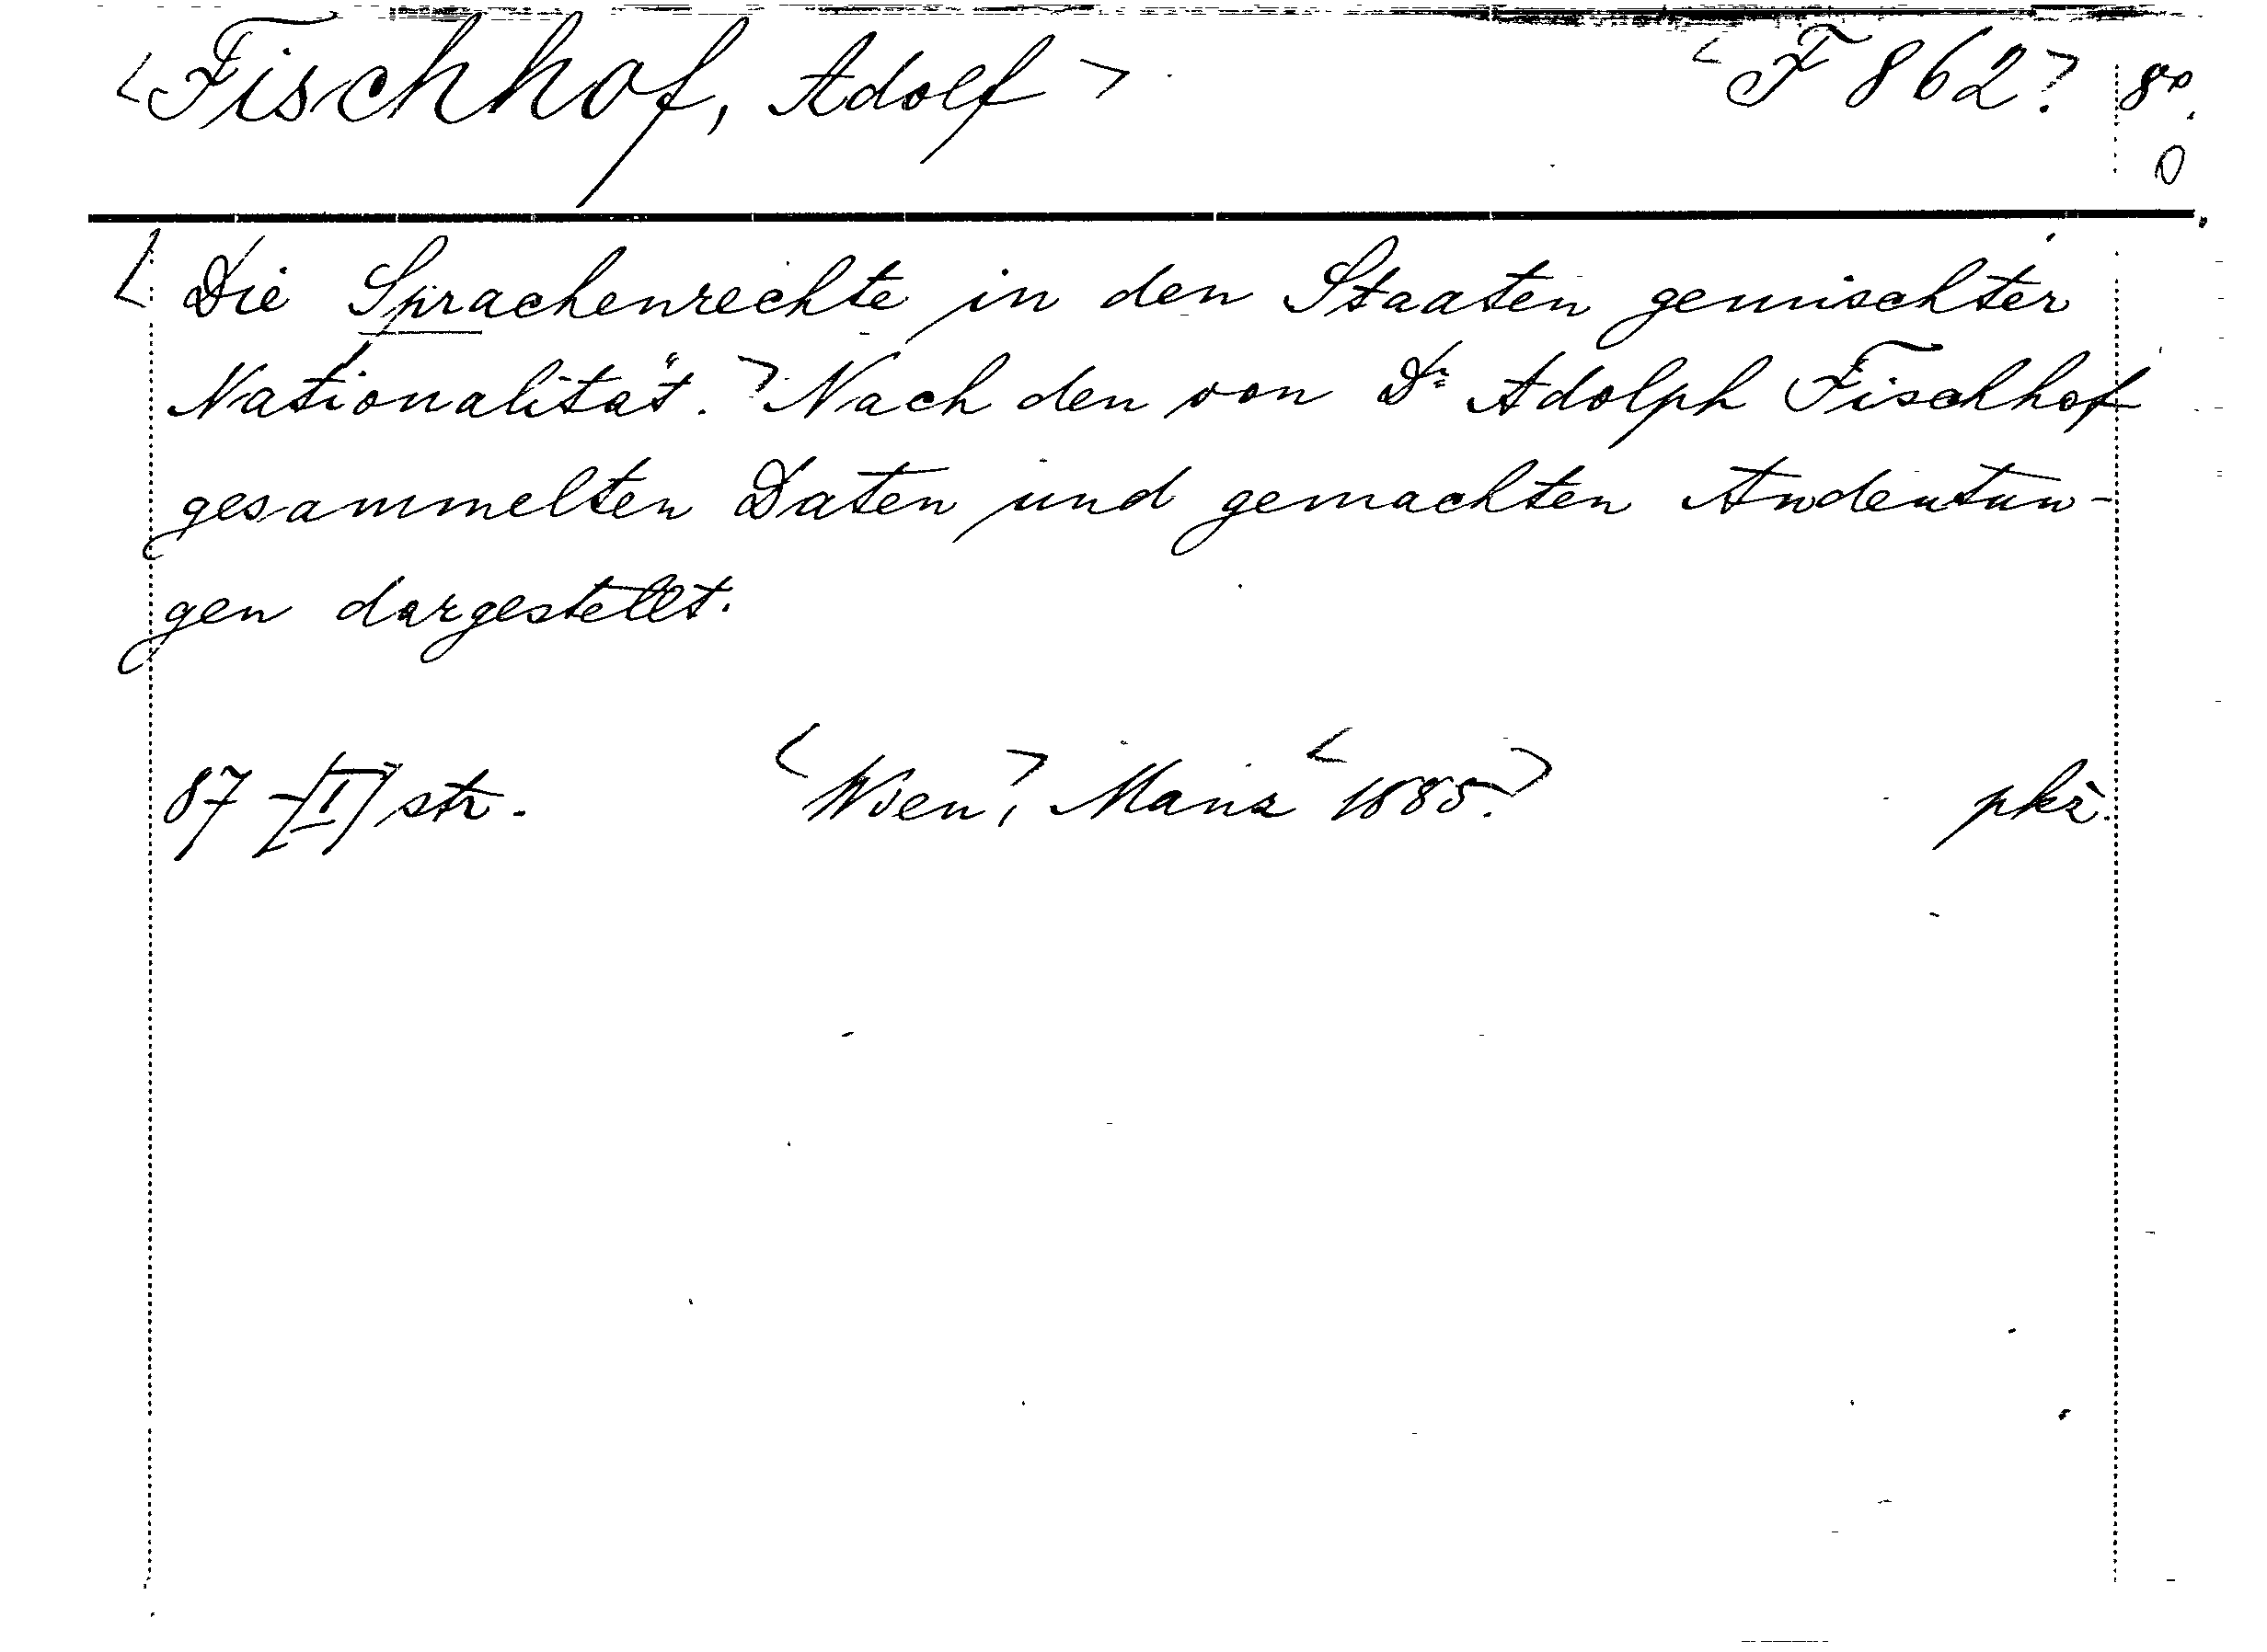 <Fischhof, Adolf> <F 862> 8°.
0
<Die Sprachenrechte in den Staaten gemischter
Nationalität.> Nach den von Dr Adolph Fischhof
gesammelten Daten und gemachten Andeutun-
gen dargestellt.
87 - [I] str. <Wien>, Manz <1885.> pkž.